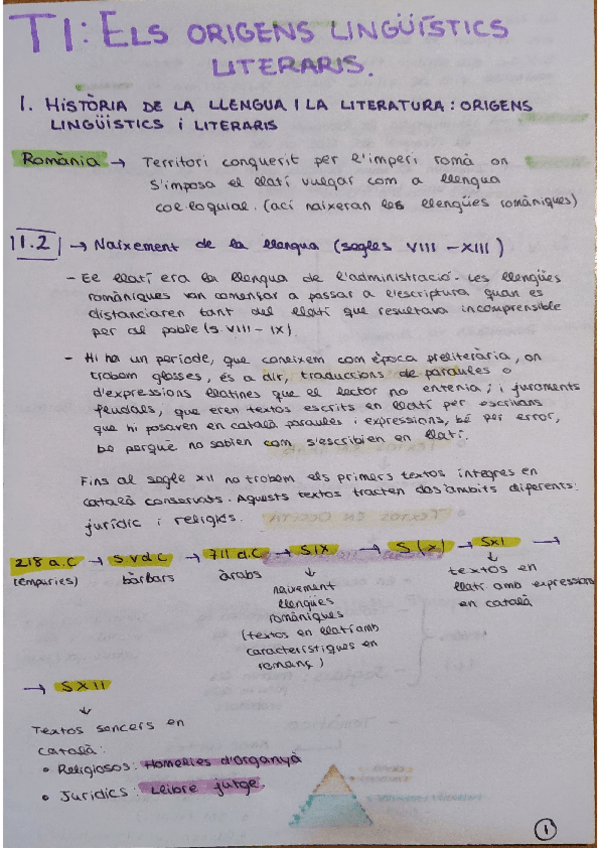 T1: ELS ORIGENS LINGÜÍSTICS
LITERARIS.
1. HISTÒRIA DE LA LLENGUA I LA LITERATURA: ORIGENS
LINGÜISTICS i LITERARIS
Romània → Territori conquerit per l'imperi romà on
s'imposa el llatí vulgar com a llengua
col·loquial. (ací naixeran les llengües romàniques)
11.2 → Naixement de la llengua (segles VIII - XIII)
- El llatí era la llengua de l'administració. Les llengües
romàniques van començar a passar a l'escriptura quan es
distanciaren tant del llatí que resultava incomprensible
per al poble (s. VIII - IX).
- Hi ha un període, que coneixem com època preliterària, on
trobem glosses, és a dir, traduccions de paraules o
d'expressions llatines que el lector no entenia; i juraments
feudals, que eren textos escrits en llatí per escribans
que hi posaven en català paraules i expressions, bé per error,
be perquè no sabien com s'escribien en llatí.
Fins al segle XII no trobem els primers textos íntegres en
català conservats. Aquests textos tracten dos àmbits diferents:
jurídic i religiós.
218 a.C → S.V d C → 711 d.C → S IX → S (X) → S XI →
(empuries) bàrbars àrabs ↓ ↓
naixement
llengües
romàniques
(textos en llatí amb
característiques en
romanç)
textos en
llatí amb expressions
en català
→ S XII
↓
Textos sencers en
català:
• Religiosos: Homelies d'Organyà
• Jurídics: Llibre jutge.
1